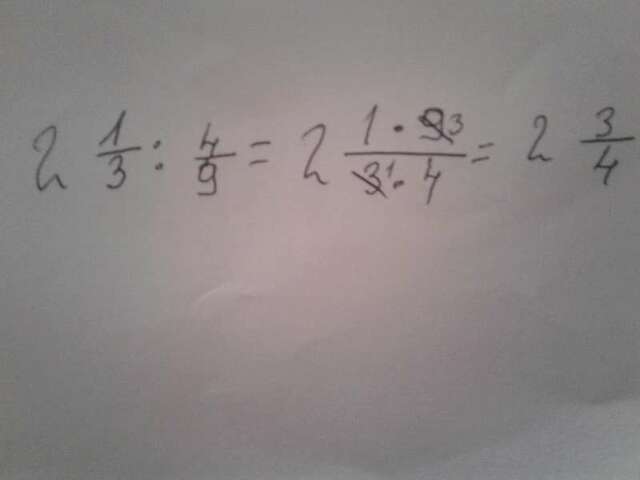 2 1/3 : 4/9 = 2 1 · 9 3 / 3 1 · 4 = 2 3/4